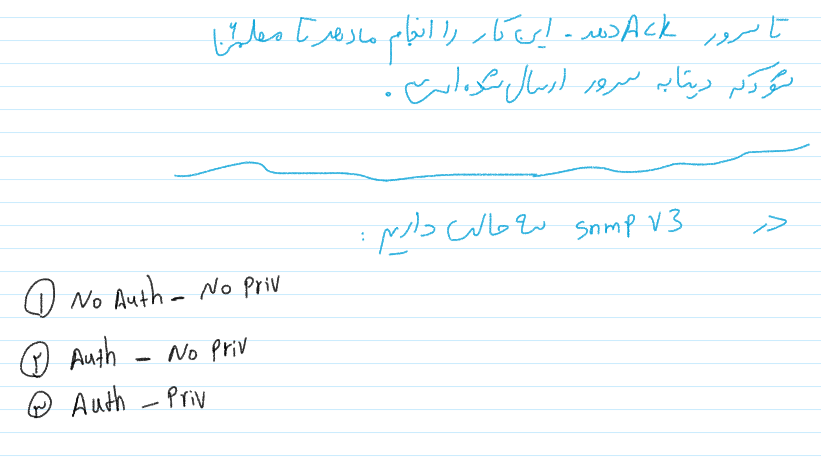 تا سرور Ack دهد - این کار را انجام مادهد تا مطمئن
شود که دیتا به سرور ارسال شده است .
در snmp V3 سه حالت داریم :
① No Auth - No Priv
② Auth - No Priv
③ Auth - Priv